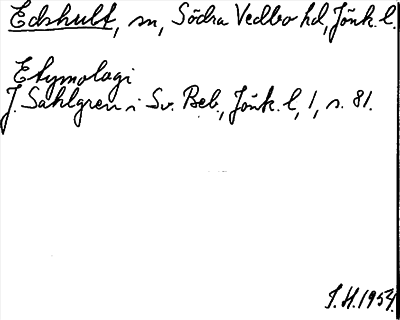 Edshult, sn, Södra Vedbo hd, Jönk. l.
Etymologi
J. Sahlgren i Sv. Beb., Jönk. l, 1, s. 81.
I. H. 1954.